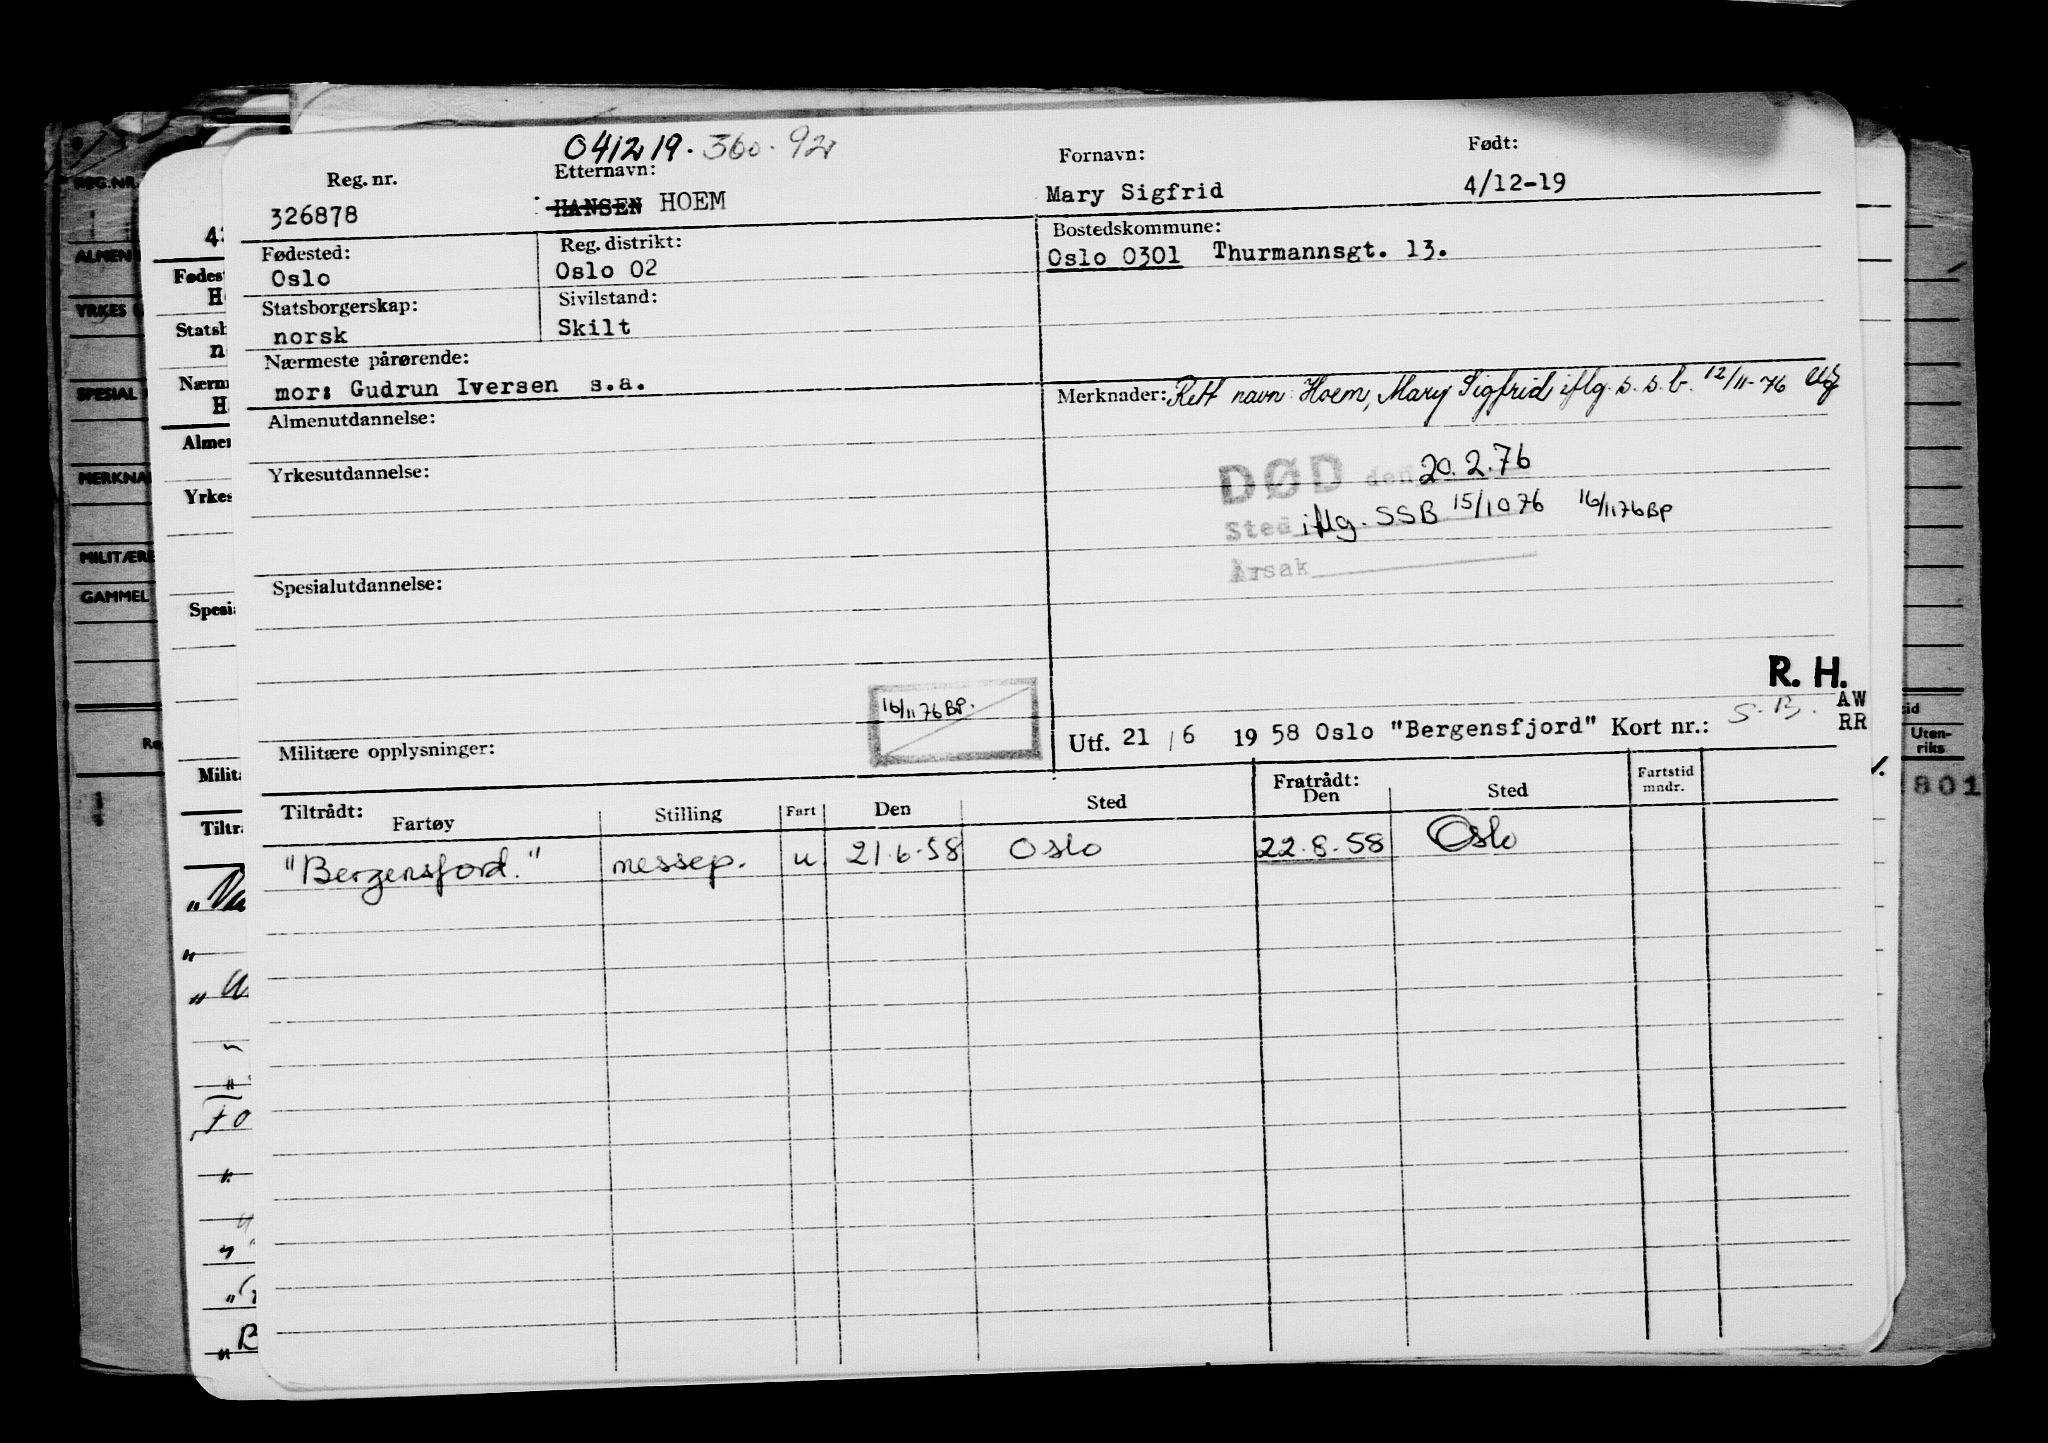 041219.360.92
Reg. nr. Etternavn: Fornavn: Født:
326878 HANSEN HOEM Mary Sigfrid 4/12-19
Fødested: Reg. distrikt: Bostedskommune:
Oslo Oslo 02 Oslo 0301 Thurmannsgt. 13.
Statsborgerskap: Sivilstand:
norsk Skilt
Nærmeste pårørende:
mor: Gudrun Iversen s.a.
Merknader: Rett navn: Hoem, Mary Sigfrid iflg. s.s.b. 12/11-76
Almenutdannelse:
Yrkesutdannelse:
DØD den 20.2.76
Sted iflg. SSB 15/10 76 16/11 76 BP
Årsak
Spesialutdannelse:
R. H.
16/11 76 BP.
S.B. AW
RR
Militære opplysninger:
Utf. 21 / 6 19 58 Oslo "Bergensfjord" Kort nr.:
Tiltrådt: Fratrådt:
Fartøy Stilling Fart Den Sted Den Sted Fartstid mndr.
"Bergensfjord." messep. u 21.6.58 Oslo 22.8.58 Oslo
REG.NR.
ALMEN
YRKES
SPESIAL
MERKNA
MILITÆRE
GAMMEL
Fødes
Statsb
Nærm
Almen
Yrkes
Spesia
Milita
Tiltr
Uten-
riks
801